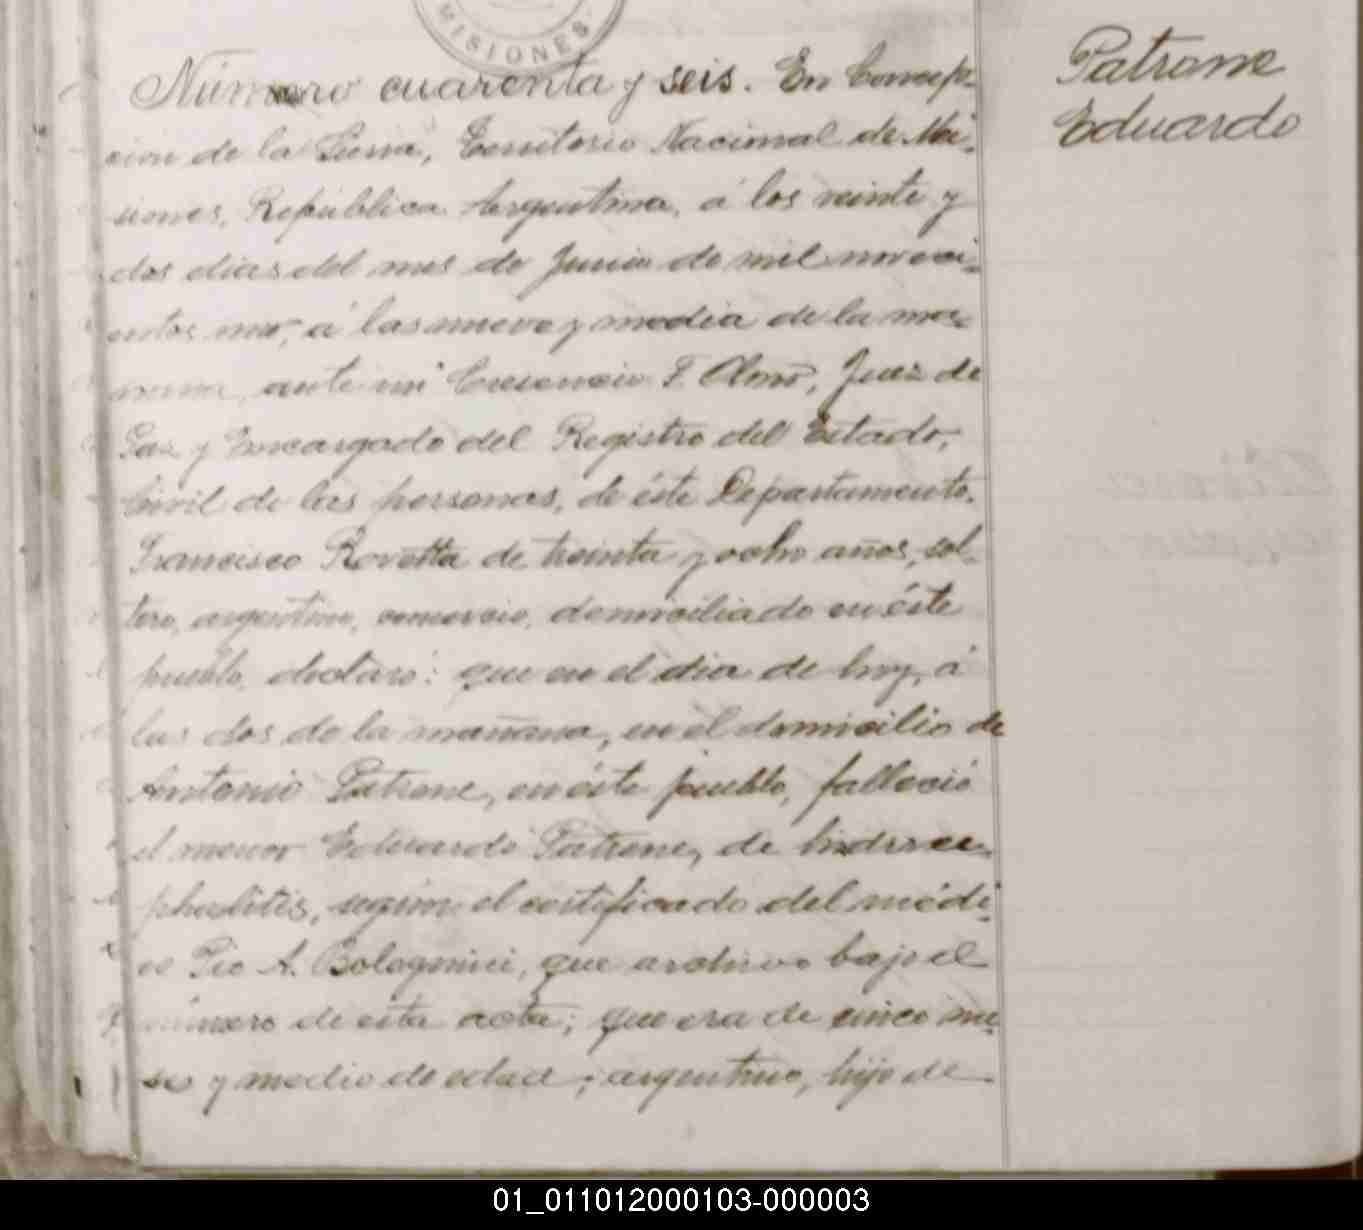 MISIONES
Número cuarenta y seis. En Concep-
cion de la Sierra, Territorio Nacional de Mi-
siones, República Argentina, á los veinte y
dos dias del mes de Junio de mil noveci-
entos , á las nueve y media de la ma-
ñana, ante mi Cresencio F. , Juez de
Paz y Encargado del Registro del Estado,
Civil de las personas, de éste Departamento.
Francisco Rovetta de treinta y ocho años, sol-
tero, argentino, comercio, domiciliado en éste
pueblo, declaró: que en el dia de hoy, á
las dos de la mañana, en el domicilio de
Antonio Patrone, en éste pueblo, falleció
el menor Eduardo Patrone, de hidroce-
phalitis, según el certificado del médi-
co Pio A. Bolognini, que archivo bajo el
número de esta acta; que era de cinco me-
ses y medio de edad; argentino, hijo de
Patrone
Eduardo
01_011012000103-000003